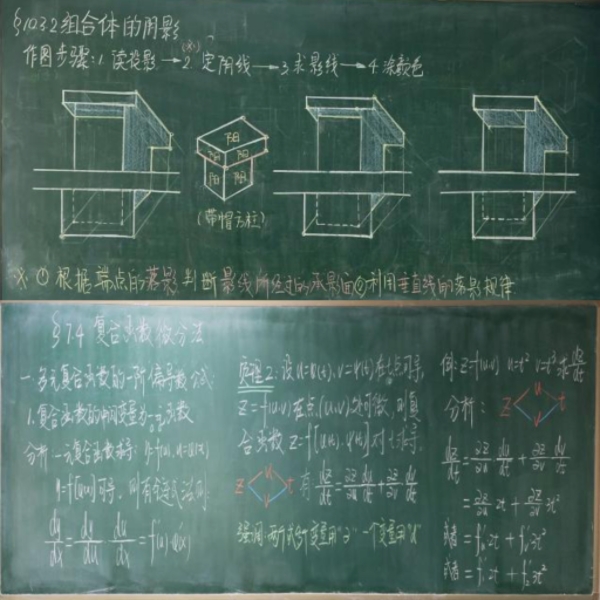 §10.3.2 组合体的阴影
作图步骤: 1. 读投影 → 2. 定阴线 → 3. 求影线 → 4. 涂颜色
(※)
阳
阳
阳
阳
(带帽方柱)
※ ① 根据端点的落影判断影线所经过的承影面 ② 利用垂直线的落影规律
§7.4 复合函数微分法
一. 多元复合函数的一阶偏导数公式
1. 复合函数的中间变量为一元函数
分析: 一元复合函数求导: y=f(u), u=φ(x)
y=f[φ(x)]可导, 则有链式法则:
dy/dx = dy/du · du/dx = f'(u)·φ'(x)
定理2: 设u=φ(t), v=ψ(t)在t点可导,
z=f(u·v)在点(u,v)处可微, 则复
合函数z=f[φ(t), ψ(t)]对t求导,
z u v t 有: dz/dt = ∂z/∂u du/dt + ∂z/∂v dv/dt
强调: 两个或多个变量用"∂" 一个变量用"d"
例: z=f(u·v) u=t² v=t³ 求dz/dt
分析: z u v t
dz/dt = ∂z/∂u du/dt + ∂z/∂v dv/dt
= ∂z/∂u 2t + ∂z/∂v 3t²
或者 = f'u 2t + f'v 3t²
或者 = f'1 2t + f'2 3t²